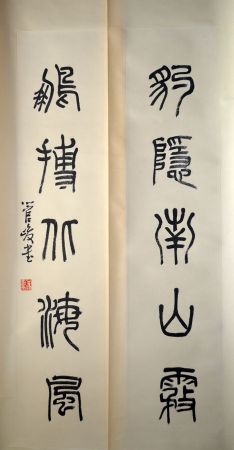 豹隱南山霧
鵬搏北海風
管峻書